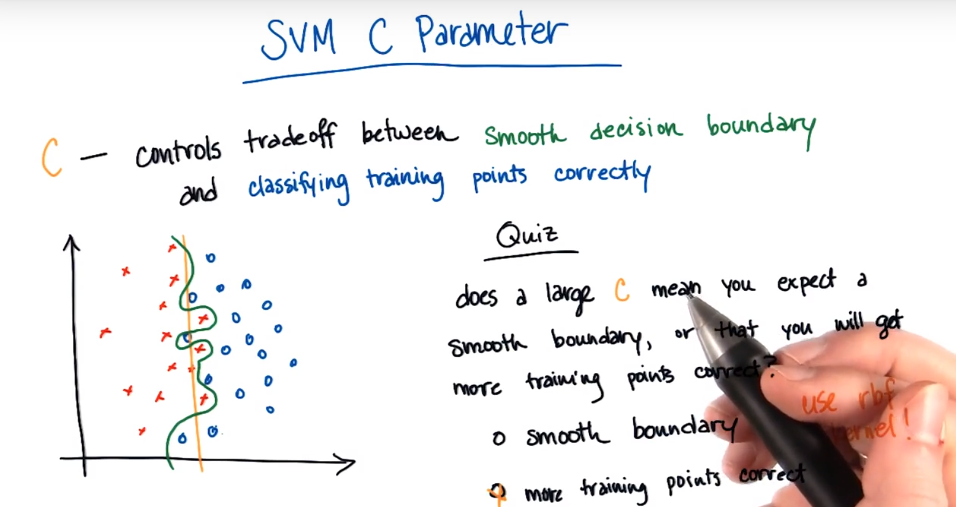 SVM C Parameter
C — controls tradeoff between smooth decision boundary
and classifying training points correctly
Quiz
does a large C mean you expect a
smooth boundary, or that you will get
more training points correct?
use rbf
kernel!
o smooth boundary
o more training points correct